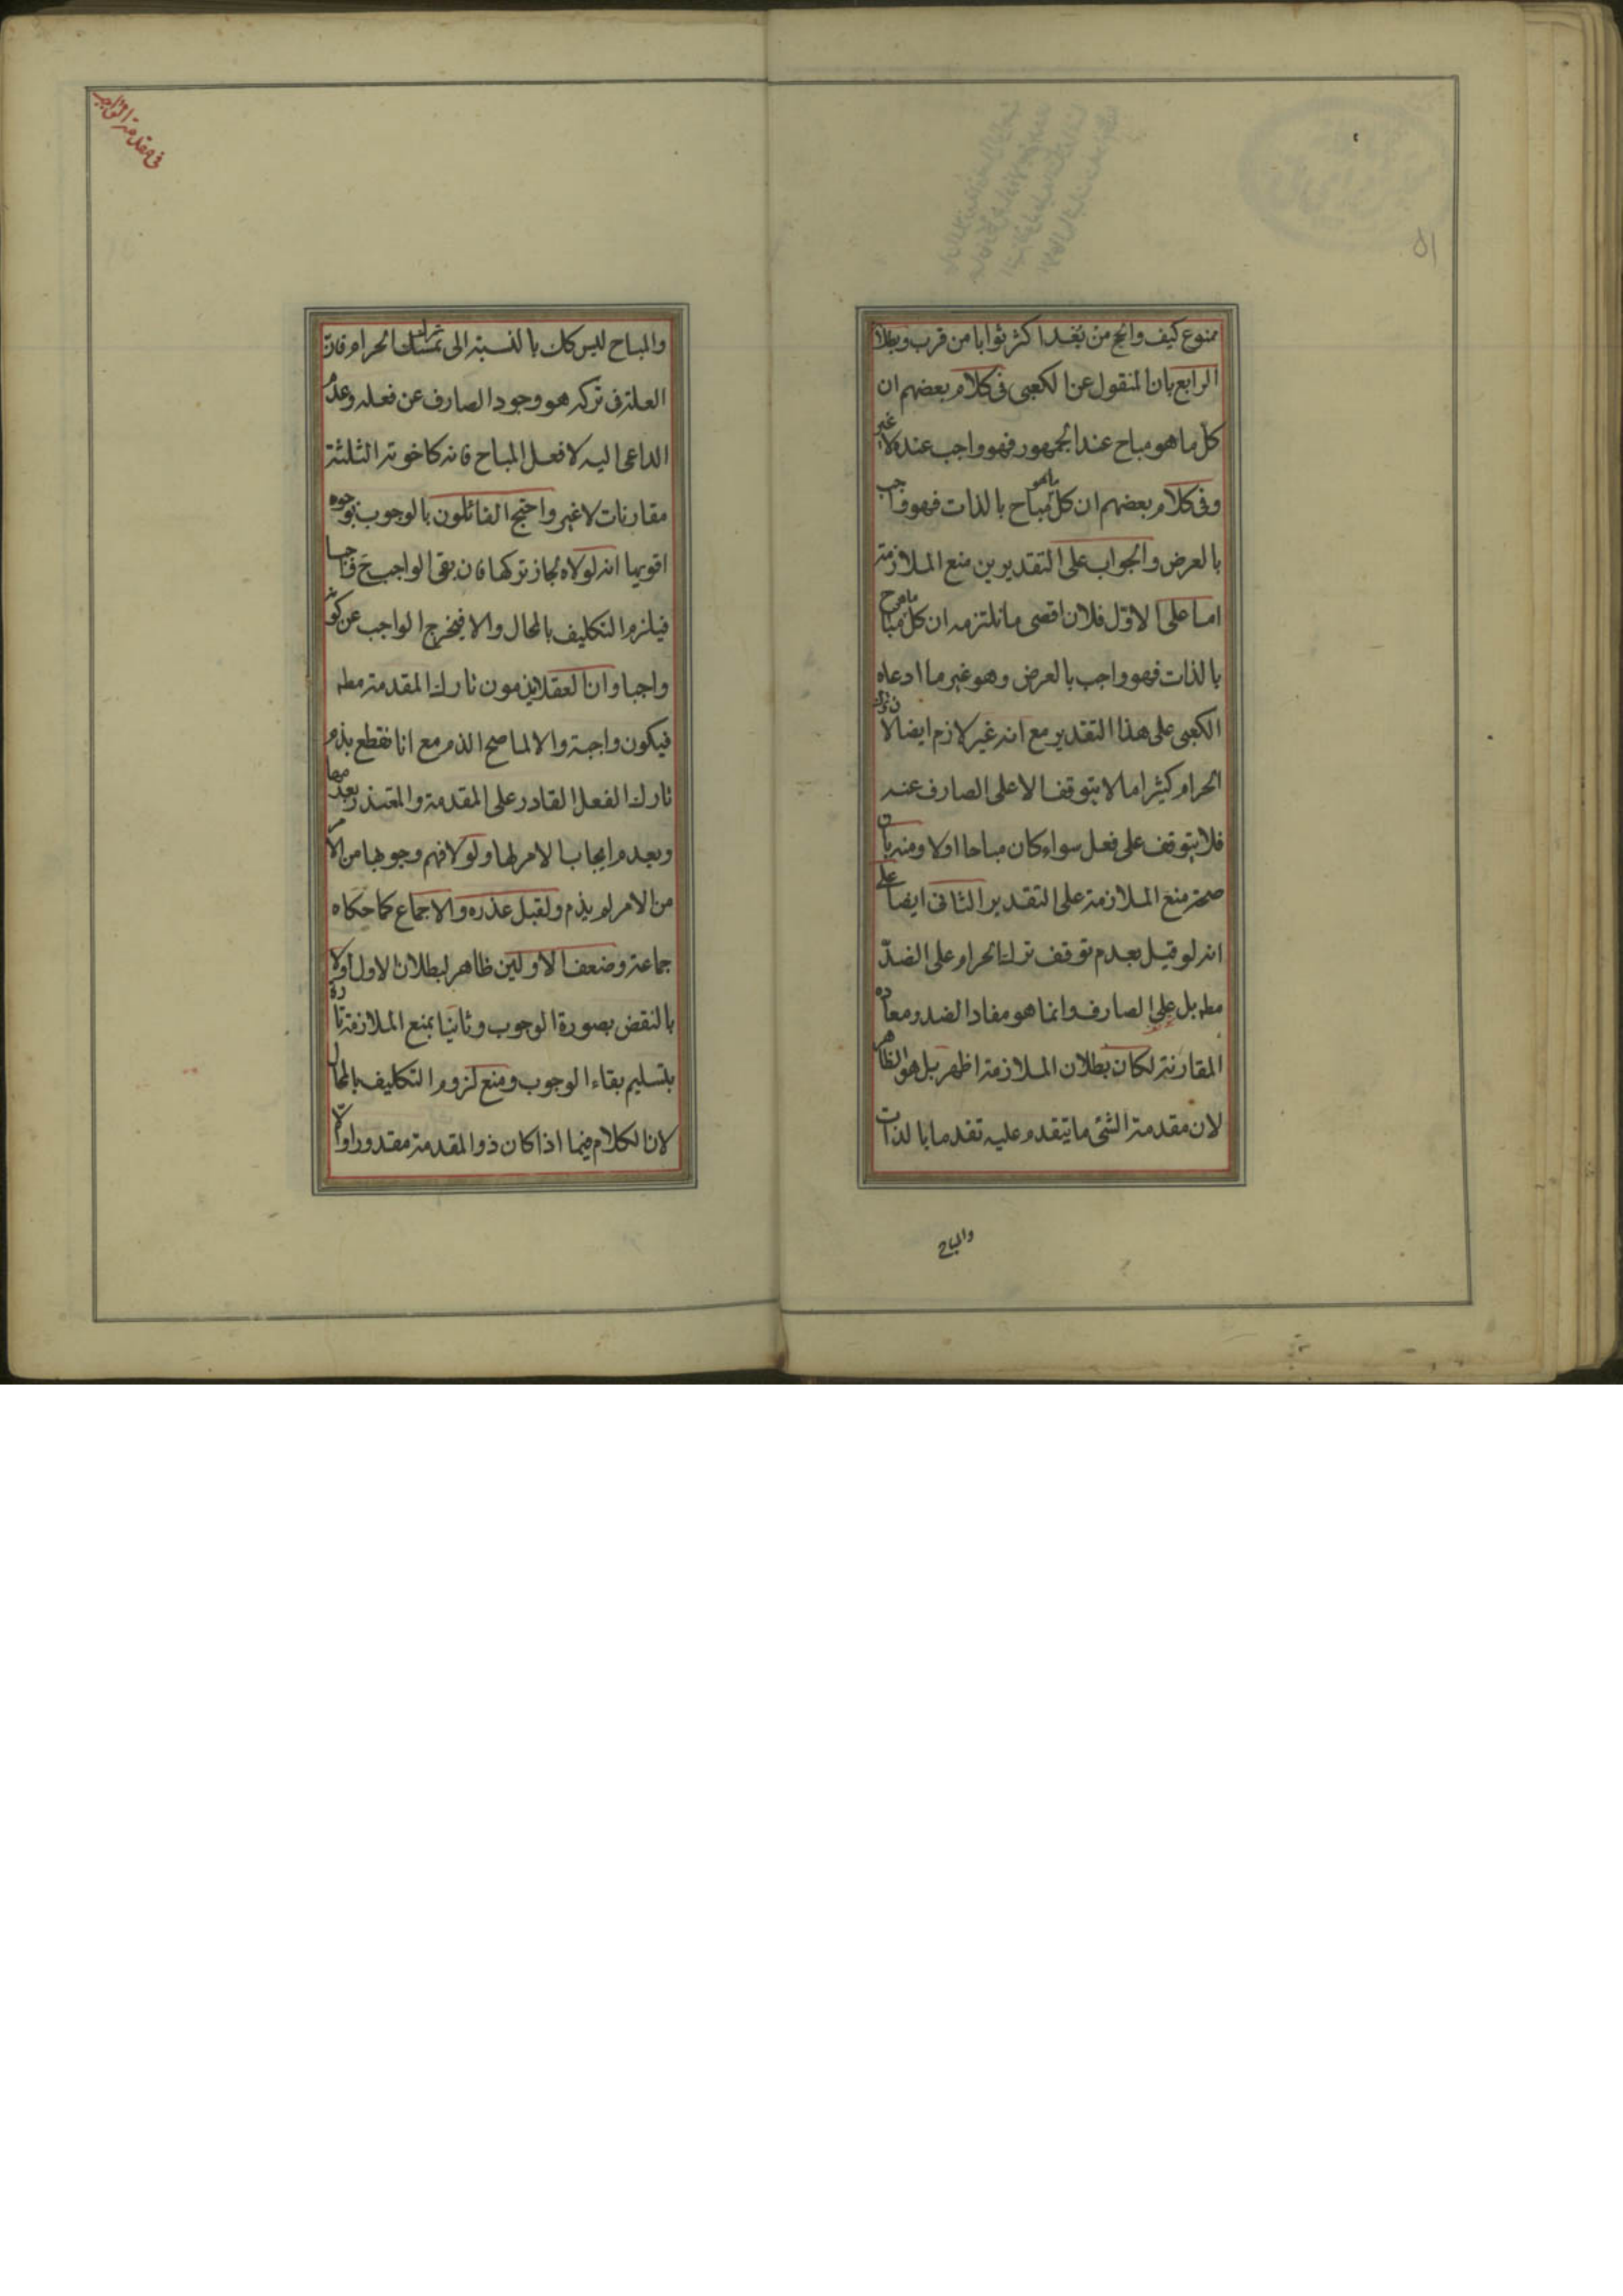 ممنوع كيف والحج من بعد اكثر ثوابا من قرب وبطلا
الرابع بان المنقول عن الكعبى فى كلام بعضهم ان
كل ما هو مباح عند الجمهور فهو واجب عنده لا غير
وفى كلام بعضهم ان كل ما هو مباح بالذات فهو واجب
بالعرض والجواب على التقديرين منع الملازمة
اما على الاول فلان اقصى ما نلتزمه ان كل ما هو مباح
بالذات فهو واجب بالعرض وهو غير ما ادعاه
الكعبى على هذا التقدير مع انه غير لازم ايضا لان ترك
الحرام كثيرا ما لا يتوقف الا على الصارف عنه
فلا يتوقف على فعل سواء كان مباحا اولا ومنه بان
صحة منع الملازمة على التقدير الثانى ايضا على
انه لو قيل بعدم توقف ترك الحرام على الضد
مطه بل على الصارف وانما هو مفاد الضد ومعاده
المقارنة لكان بطلان الملازمة اظهر بل هو الظاهر
لان مقدمة الشئ ما يتقدم عليه تقدما بالذات
والمباح
فى مقدمة الواجب
والمباح ليس كك بالنسبة الى ترك الحرام فان
العلة فى تركه هو وجود الصارف عن فعله وعدم
الداعى اليه لا فعل المباح فانه كاخوته الثلثة
مقارنات لا غير واحتج القائلون بالوجوب بوجوه
اقويها انه لولاه لجاز تركها فان بقى الواجب ح واجبا
فيلزم التكليف بالمحال والا فيخرج الواجب عن كونه
واجبا وان العقلا يذمون تارك المقدمة مطه
فيكون واجبة والا لما صح الذم مع انا نقطع بذم
تارك الفعل القادر على المقدمة والمعتذر بعدمها
وبعدم ايجاب الامر لها ولولا فهم وجوبها من الامر
من الامر لم يذم ولقبل عذره والاجماع كما حكاه
جماعة وضعف الاولين ظاهر لبطلان الاول اولا
بالنقض بصورة الوجوب وثانيا بمنع الملازمة تارة
بتسليم بقاء الوجوب ومنع لزوم التكليف بالمحال
لان الكلام فيما اذا كان ذو المقدمة مقدورا والا